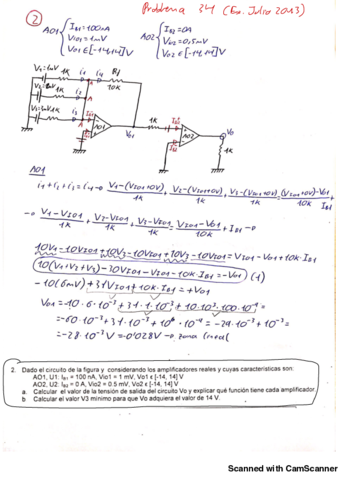 Problema 34 (Ex. Julio 2013)
2
AO1 { IB1=100nA
VIO1=1mV
VO1 ∈ [-14,14]V
AO2 { IB2=0A
VIO2=0,5mV
VO2 ∈ [-14,14]V
V1=1mV 1K i1 i4 Rf
10K
V2=2mV 1K i2 A
V3=3mV 1K i3 A
AO1
VO1
1K
AO2
VO
1K
AO1
i1+i2+i3=i4 → V1-(VIO1+0V)/1K + V2-(VIO1+0V)/1K + V3-(VIO1+0V)/1K = (VIO1+0V)-VO1/10K + IB1
→ V1-VIO1/1K + V2-VIO1/1K + V3-VIO1/1K = VIO1-VO1/10K + IB1 →
10V1-10VIO1+10V2-10VIO1+10V3-10VIO1=VIO1-VO1+10K·IB1
10(V1+V2+V3)-30VIO1-VIO1-10K·IB1=-VO1 (1)
-10(6mV)+31VIO1+10K·IB1=+VO1
VO1=-10·6·10⁻³+31·1·10⁻³+10·10³·100·10⁻⁹=
=-60·10⁻³+31·10⁻³+10⁶·10⁻⁹=-29·10⁻³+10⁻³=
=-28·10⁻³V=-0'028V → zona lineal
2. Dado el circuito de la figura y considerando los amplificadores reales y cuyas características son:
AO1, U1: IB1 = 100 nA, Vio1 = 1 mV, Vo1 є [-14, 14] V
AO2, U2: IB2 = 0 A, Vio2 = 0.5 mV, Vo2 є [-14, 14] V
a. Calcular el valor de la tensión de salida del circuito Vo y explicar qué función tiene cada amplificador.
b. Calcular el valor V3 mínimo para que Vo adquiera el valor de 14 V.
Scanned with CamScanner